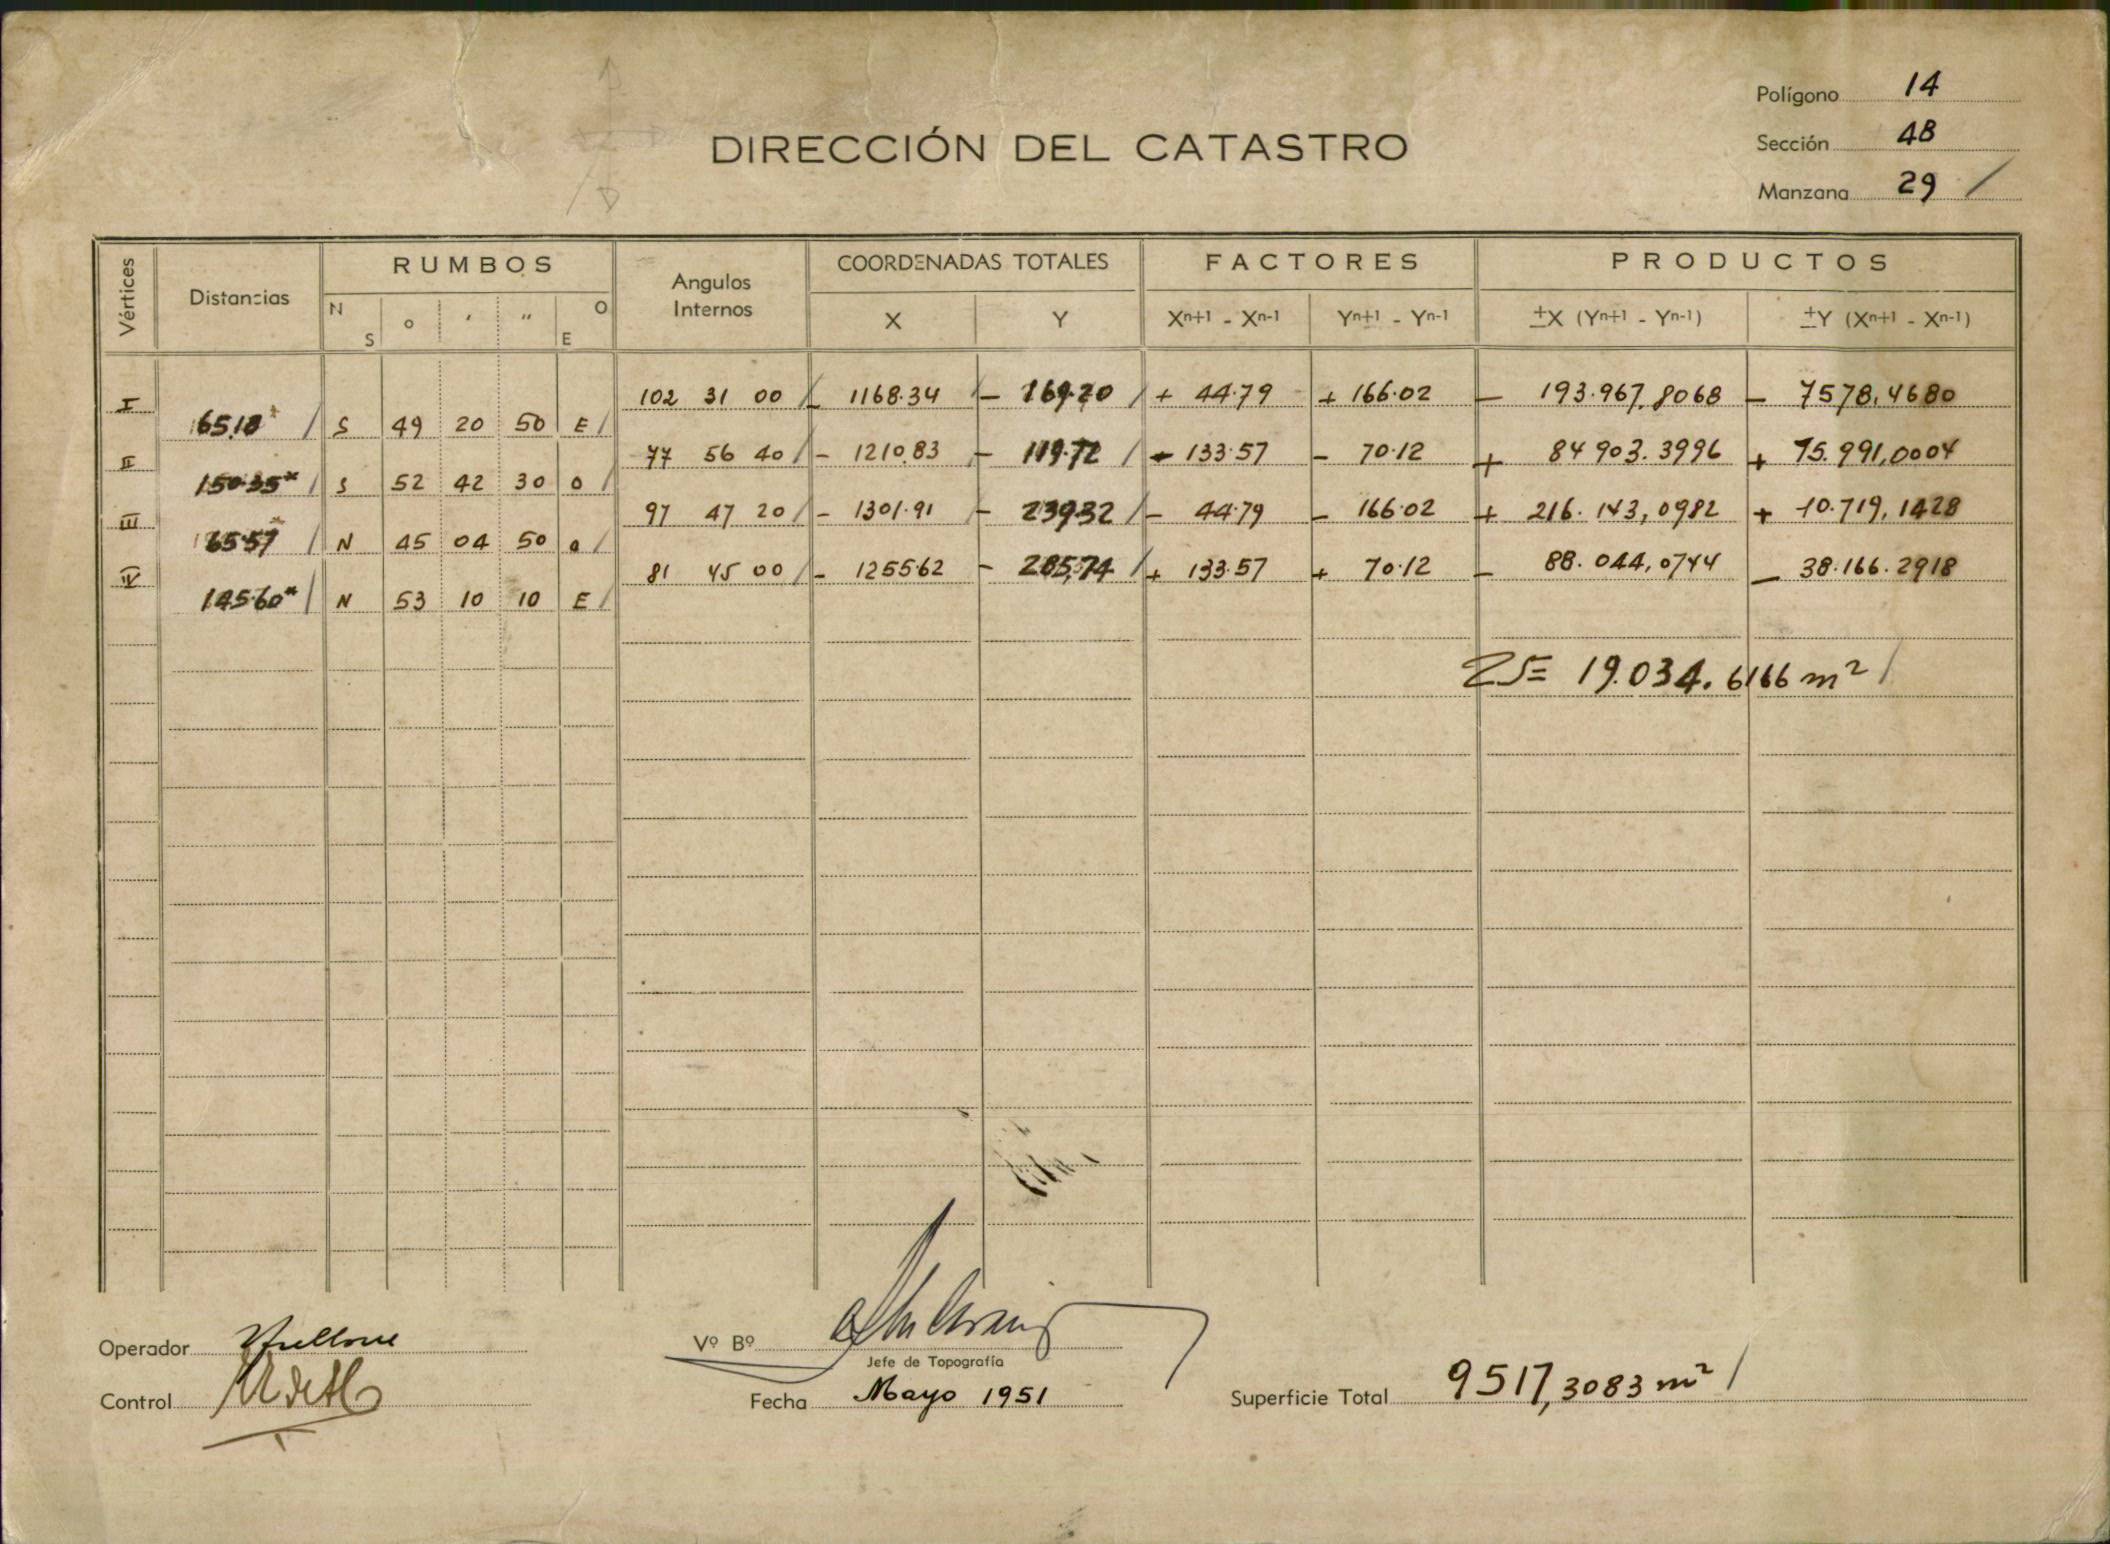 Polígono 14
DIRECCIÓN DEL CATASTRO
Sección 4B
Manzana 29 /
Vértices Distancias RUMBOS Angulos Internos COORDENADAS TOTALES FACTORES PRODUCTOS
N S o ' " O E X Y Xn+1 - Xn-1 Yn+1 - Yn-1 ±X (Yn+1 - Yn-1) ±Y (Xn+1 - Xn-1)
I 102 31 00 / - 1168.34 / - 169.20 / + 44.79 + 166.02 - 193.967,8068 - 7578,4680
65.18* / S 49 20 50 E /
II 77 56 40 / - 1210.83 / - / - 133.57 - 70.12 + 84 903.3996 + 15.991,0004
150.35* / S 52 42 30 O /
III 97 47 20 / - 1301.91 / - 239.32 / - 44.79 - 166.02 + 216.143,0982 + 10.719,1428
65.57* / N 45 04 50 O /
IV 81 45 00 / - 1255.62 - 285.74 / + 133.57 + 70.12 - 88.044,0744 - 38.166.2918
145.60* / N 53 10 10 E /
2S= 19.034.6166 m² /
Operador
Vº Bº
Jefe de Topografía
Control
Fecha Mayo 1951
Superficie Total 9517,3083 m² /